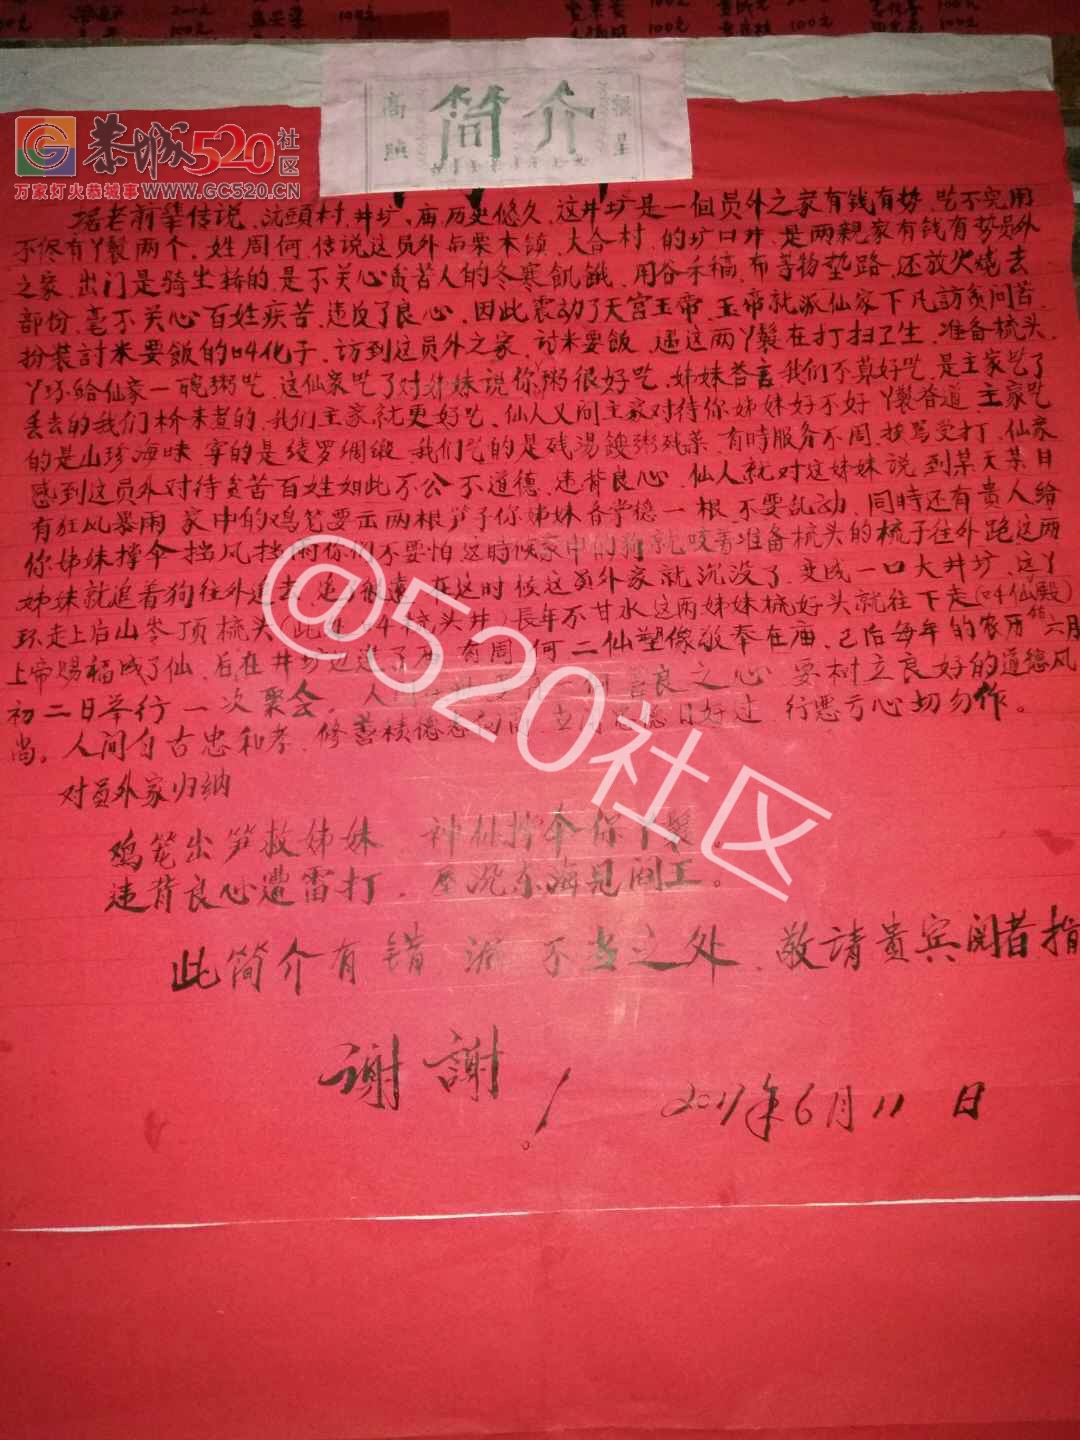 100元
200元
100元
100元
100元
100元
高照
简介
福星
恭城520社区
万家灯火恭城事 WWW.GC520.CN
据老前辈传说,沉頭村,井圹,庙历史悠久,这井圹是一個员外之家有钱有势,吃不完用
不尽有丫鬟两个,姓周何,传说这员外与栗木镇,大合村,的圹口井,是两親家有钱有势员外
之家,出门是骑坐轿的是不关心贫苦人的冬寒飢餓,用谷禾稿,布等物垫路,还放火燒去
部份,毫不关心百姓疾苦,违反了良心,因此震动了天宫玉帝,玉帝就派仙家下凡訪貧问苦,
扮装討米要飯的叫化子,访到这员外之家,讨米要饭,遇这两丫鬟在打扫卫生,准备梳头,
丫环給仙家一碗粥吃,这仙家吃了对姊妹说你粥很好吃,姊妹答言我们不算好吃,是主家吃了
丢去的我们 耒煮的,我们主家就更好吃,仙人又问主家对待你姊妹好不好丫鬟答道,主家吃
的是山珍海味,穿的是绫罗绸缎,我们吃的是残湯 粥残菜,有時服务不周,挨骂受打,仙家
感到这员外对待贫苦百姓如此不公不道德,违背良心,仙人就对这姊妹说到某天某日
有狂风暴雨家中的鸡笼要 两根笋子你姊妹各掌稳一根,不要乱动,同時还有贵人给
你姊妹撑伞挡风挡雨你们不要怕这時候家中的狗就咬着准备梳头的梳子往外跑这两
姊妹就追着狗往外追去,追 很遠,在这时候这员外家就沉没了,变成一口大井圹,这丫
环走上后山岑顶梳头(此 叫梳头井)長年不甘水这两姊妹梳好头就往下走(叫仙殿)
上帝赐福成了仙,后在井圹边造了庙有周何二仙塑像敬奉在庙,己后每年的农历六月
初二日举行一次聚会,人 良之心要树立良好的道德风
尚。人间自古忠和孝,修善積德 日好过,行悪亏心切勿作。
对员外家归纳
鸡笼出笋救姊妹,神仙撑伞你丫鬟。
违背良心遭雷打, 沉东海見闰王。
此简介有错 不当之处,敬請贵宾阅者指
谢謝!
2017年6月11日
@520社区